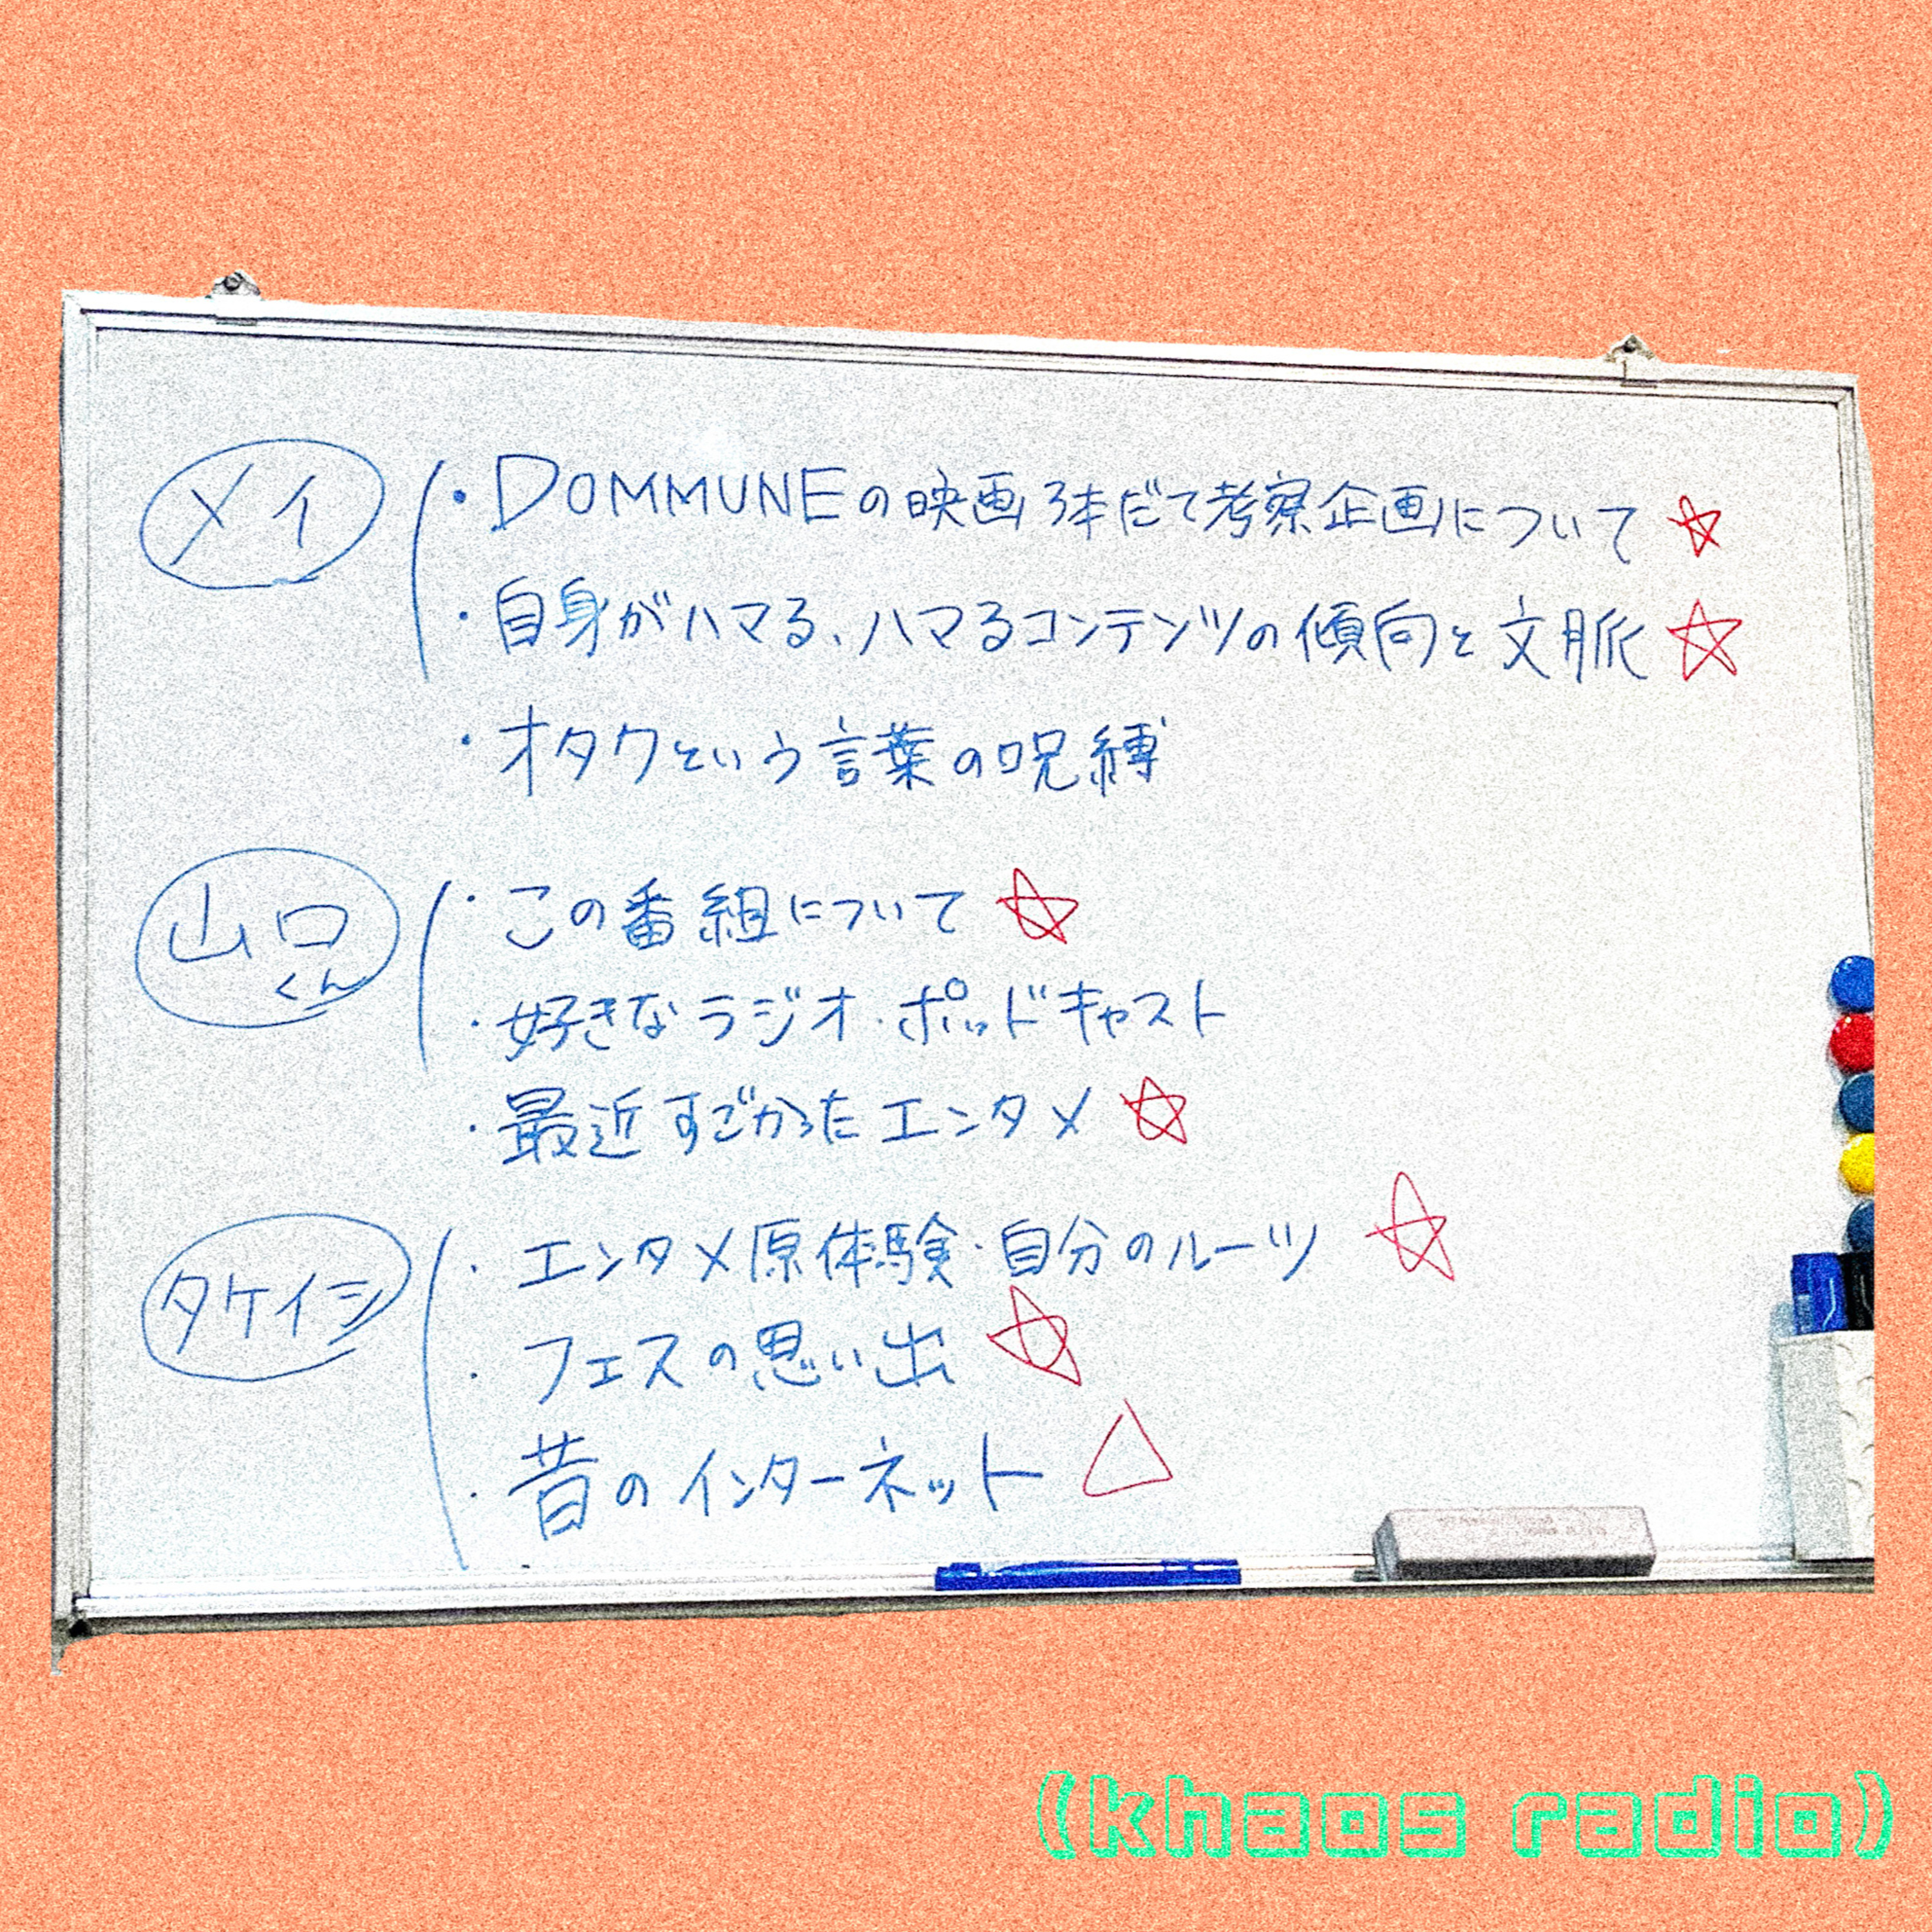 メイ
・DOMMUNEの映画3本だて考察企画について ☆
・自身がハマる、ハマるコンテンツの傾向と文脈 ☆
・オタクという言葉の呪縛
山口くん
・この番組について ☆
・好きなラジオ・ポッドキャスト
・最近すごかったエンタメ ☆
タケイシ
・エンタメ原体験・自分のルーツ ☆
・フェスの思い出 ☆
・昔のインターネット △
(khaos radio)